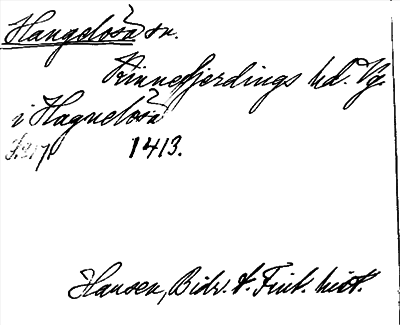 Hangelösa sn.
Kinnefjerdings hd. Vg.
i Hagnelösa
1413.
Hausen, Bidr. t. Finl. hist.